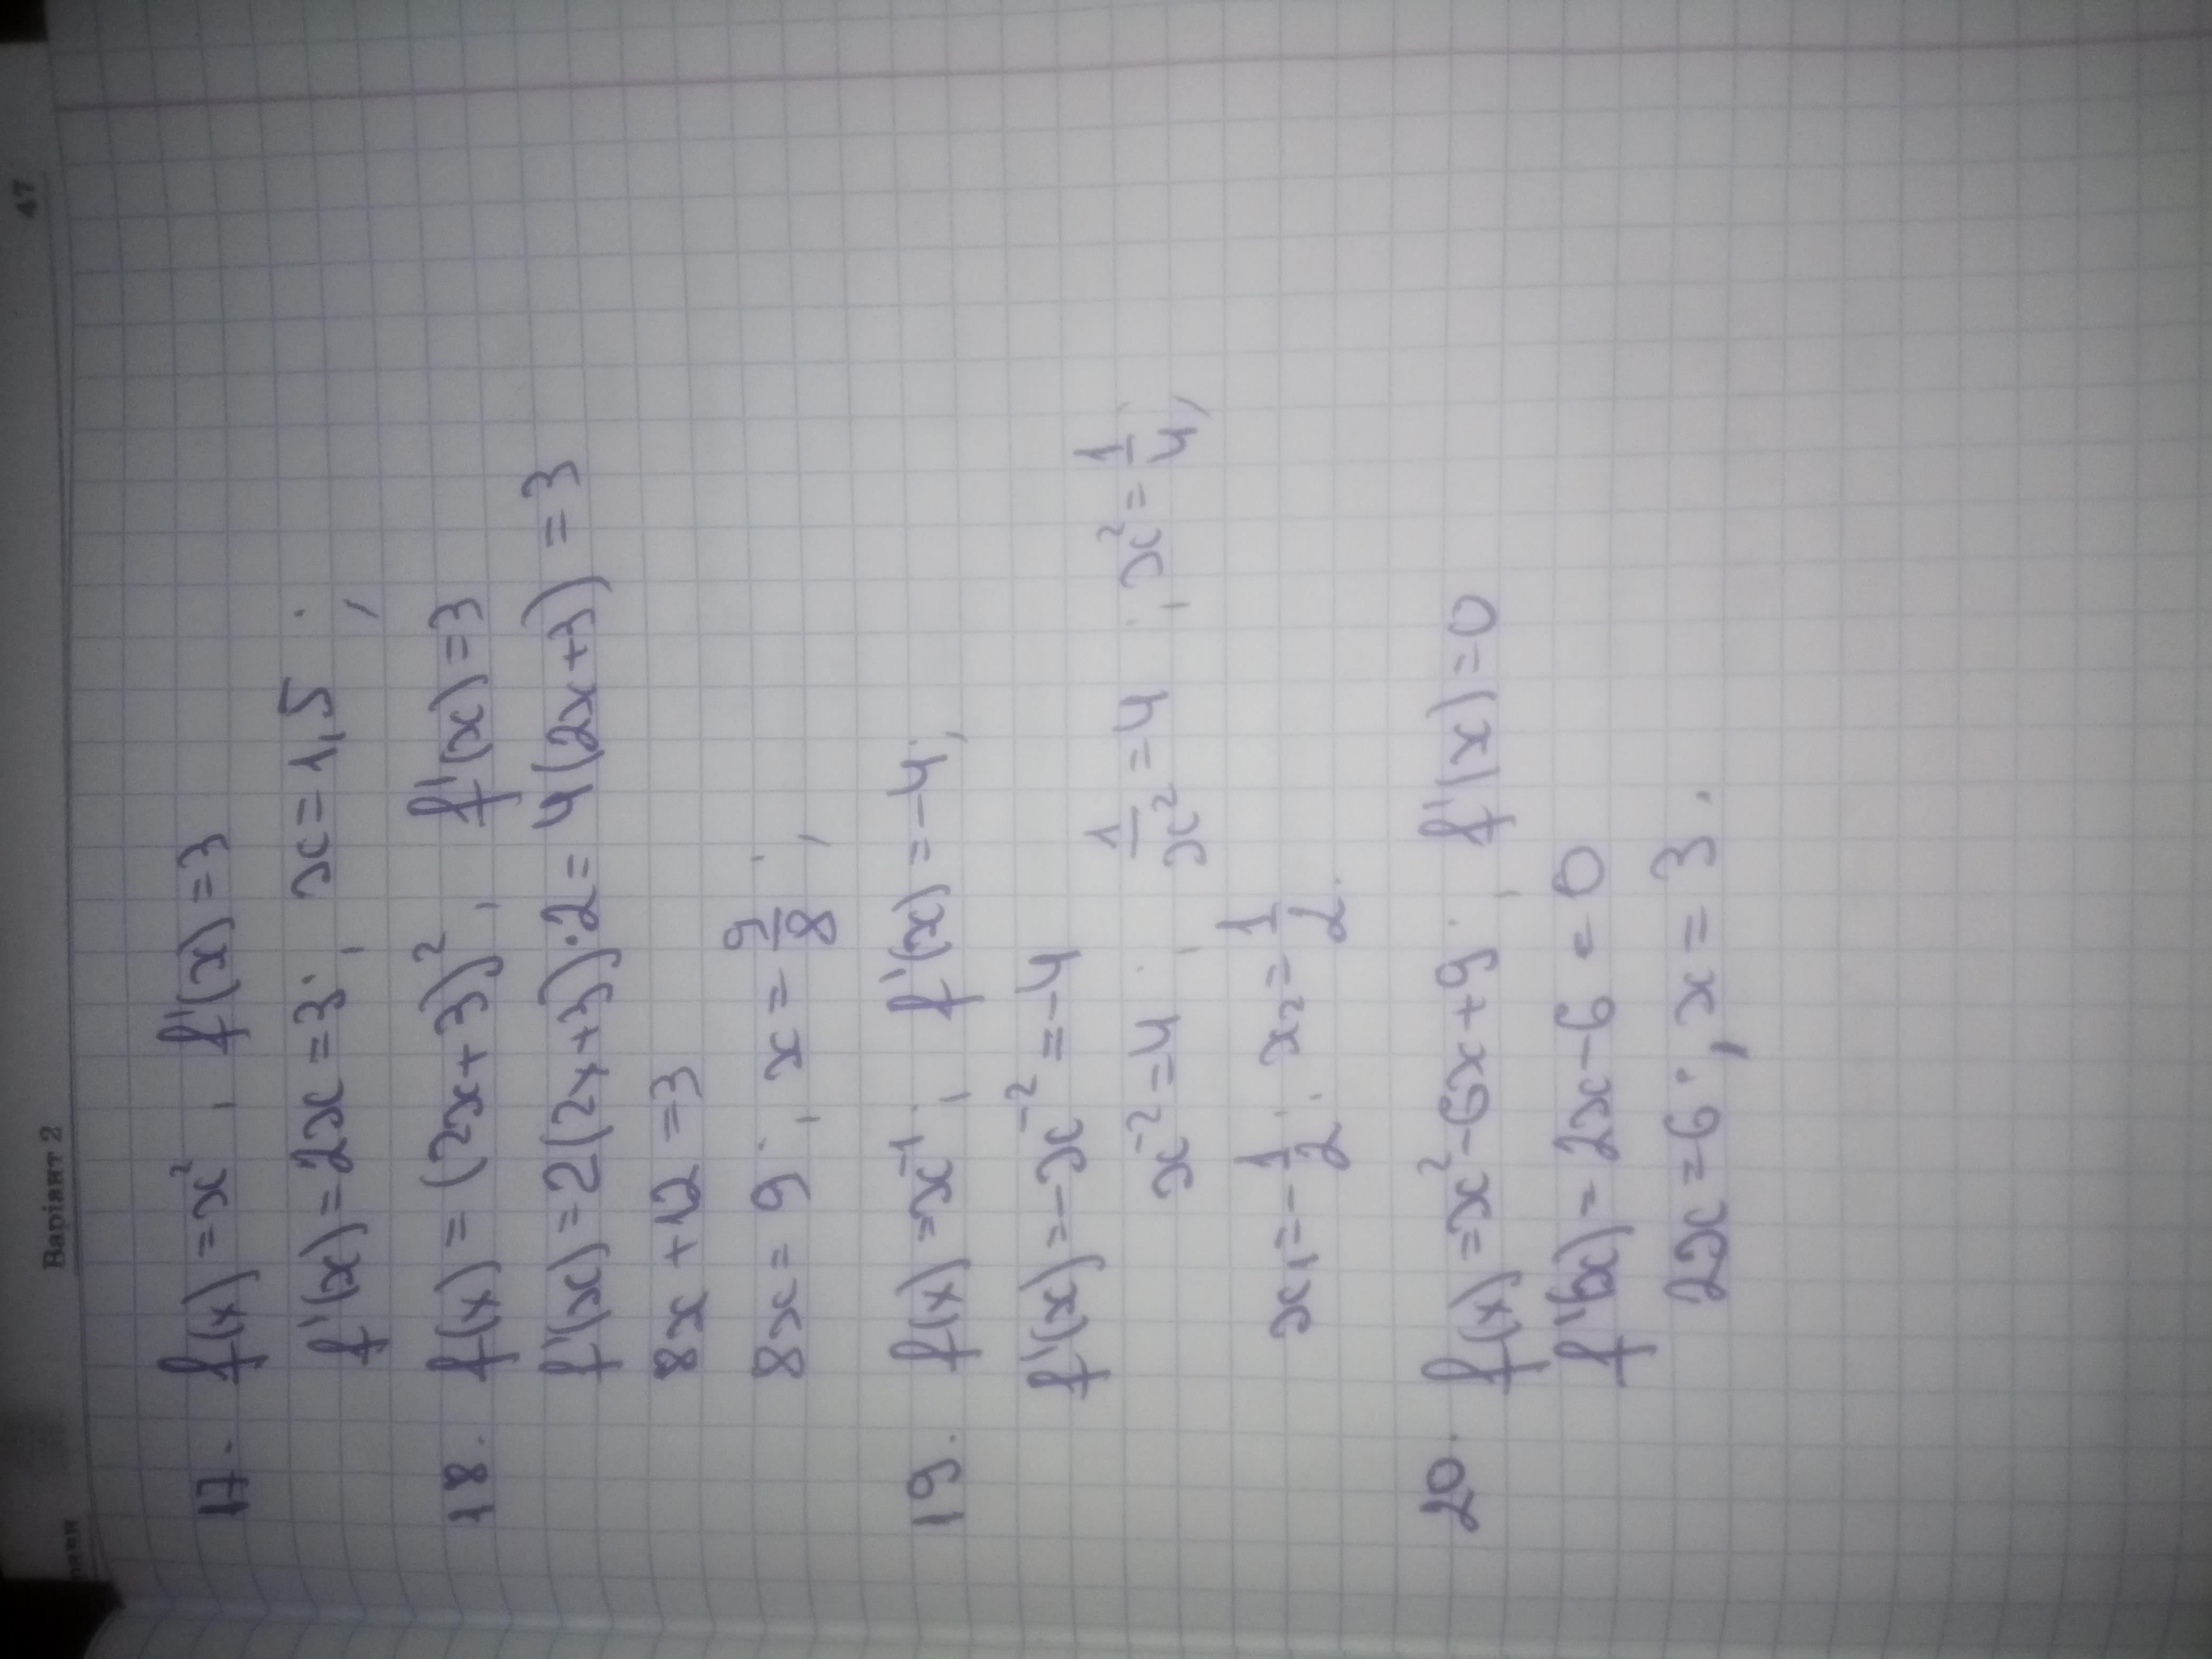 Варіант 2 47
17. f(x)=x²; f'(x)=3
f'(x)=2x=3; x=1,5;
18. f(x)=(2x+3)²; f'(x)=3
f'(x)=2(2x+3)·2=4(2x+3)=3
8x+12=3
8x=9; x=9/8;
19. f(x)=x⁻¹; f'(x)=-4;
f'(x)=-x⁻²=-4
x⁻²=4; 1/x²=4; x²=1/4;
x₁=-1/2; x₂=1/2.
20. f(x)=x²-6x+9; f'(x)=0
f'(x)=2x-6=0
2x=6; x=3.